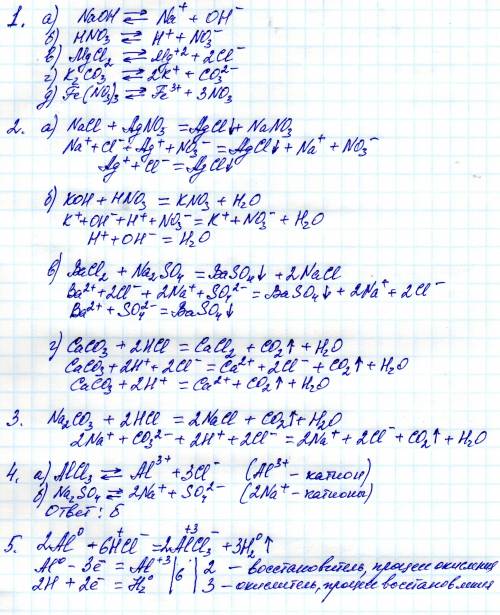 1. а) NaOH ⇄ Na⁺ + OH⁻
б) HNO₃ ⇄ H⁺ + NO₃⁻
в) MgCl₂ ⇄ Mg⁺² + 2Cl⁻
г) K₂CO₃ ⇄ 2K⁺ + CO₃²⁻
д) Fe(NO₃)₃ ⇄ Fe³⁺ + 3NO₃
2. а) NaCl + AgNO₃ = AgCl↓ + NaNO₃
Na⁺ + Cl⁻ + Ag⁺ + NO₃⁻ = AgCl↓ + Na⁺ + NO₃⁻
Ag⁺ + Cl⁻ = AgCl↓
б) KOH + HNO₃ = KNO₃ + H₂O
K⁺ + OH⁻ + H⁺ + NO₃⁻ = K⁺ + NO₃⁻ + H₂O
H⁺ + OH⁻ = H₂O
в) BaCl₂ + Na₂SO₄ = BaSO₄↓ + 2NaCl
Ba²⁺ + 2Cl⁻ + 2Na⁺ + SO₄²⁻ = BaSO₄↓ + 2Na⁺ + 2Cl⁻
Ba²⁺ + SO₄²⁻ = BaSO₄↓
г) CaCO₃ + 2HCl = CaCl₂ + CO₂↑ + H₂O
CaCO₃ + 2H⁺ + 2Cl⁻ = Ca²⁺ + 2Cl⁻ + CO₂↑ + H₂O
CaCO₃ + 2H⁺ = Ca²⁺ + CO₂↑ + H₂O
3. Na₂CO₃ + 2HCl = 2NaCl + CO₂↑ + H₂O
2Na⁺ + CO₃²⁻ + 2H⁺ + 2Cl⁻ = 2Na⁺ + 2Cl⁻ + CO₂↑ + H₂O
4. а) AlCl₃ ⇄ Al³⁺ + 3Cl⁻ (Al³⁺ - катион)
б) Na₂SO₄ ⇄ 2Na⁺ + SO₄²⁻ (2Na⁺ - катионы)
Ответ: Б
5. 2Al⁰ + 6H⁺Cl⁻ = 2Al⁺³Cl₃⁻ + 3H₂⁰↑
Al⁰ - 3ē = Al⁺³ | 6 | 2 - восстановитель, процесс окисления
2H + 2ē = H₂⁰ | | 3 - окислитель, процесс восстановления